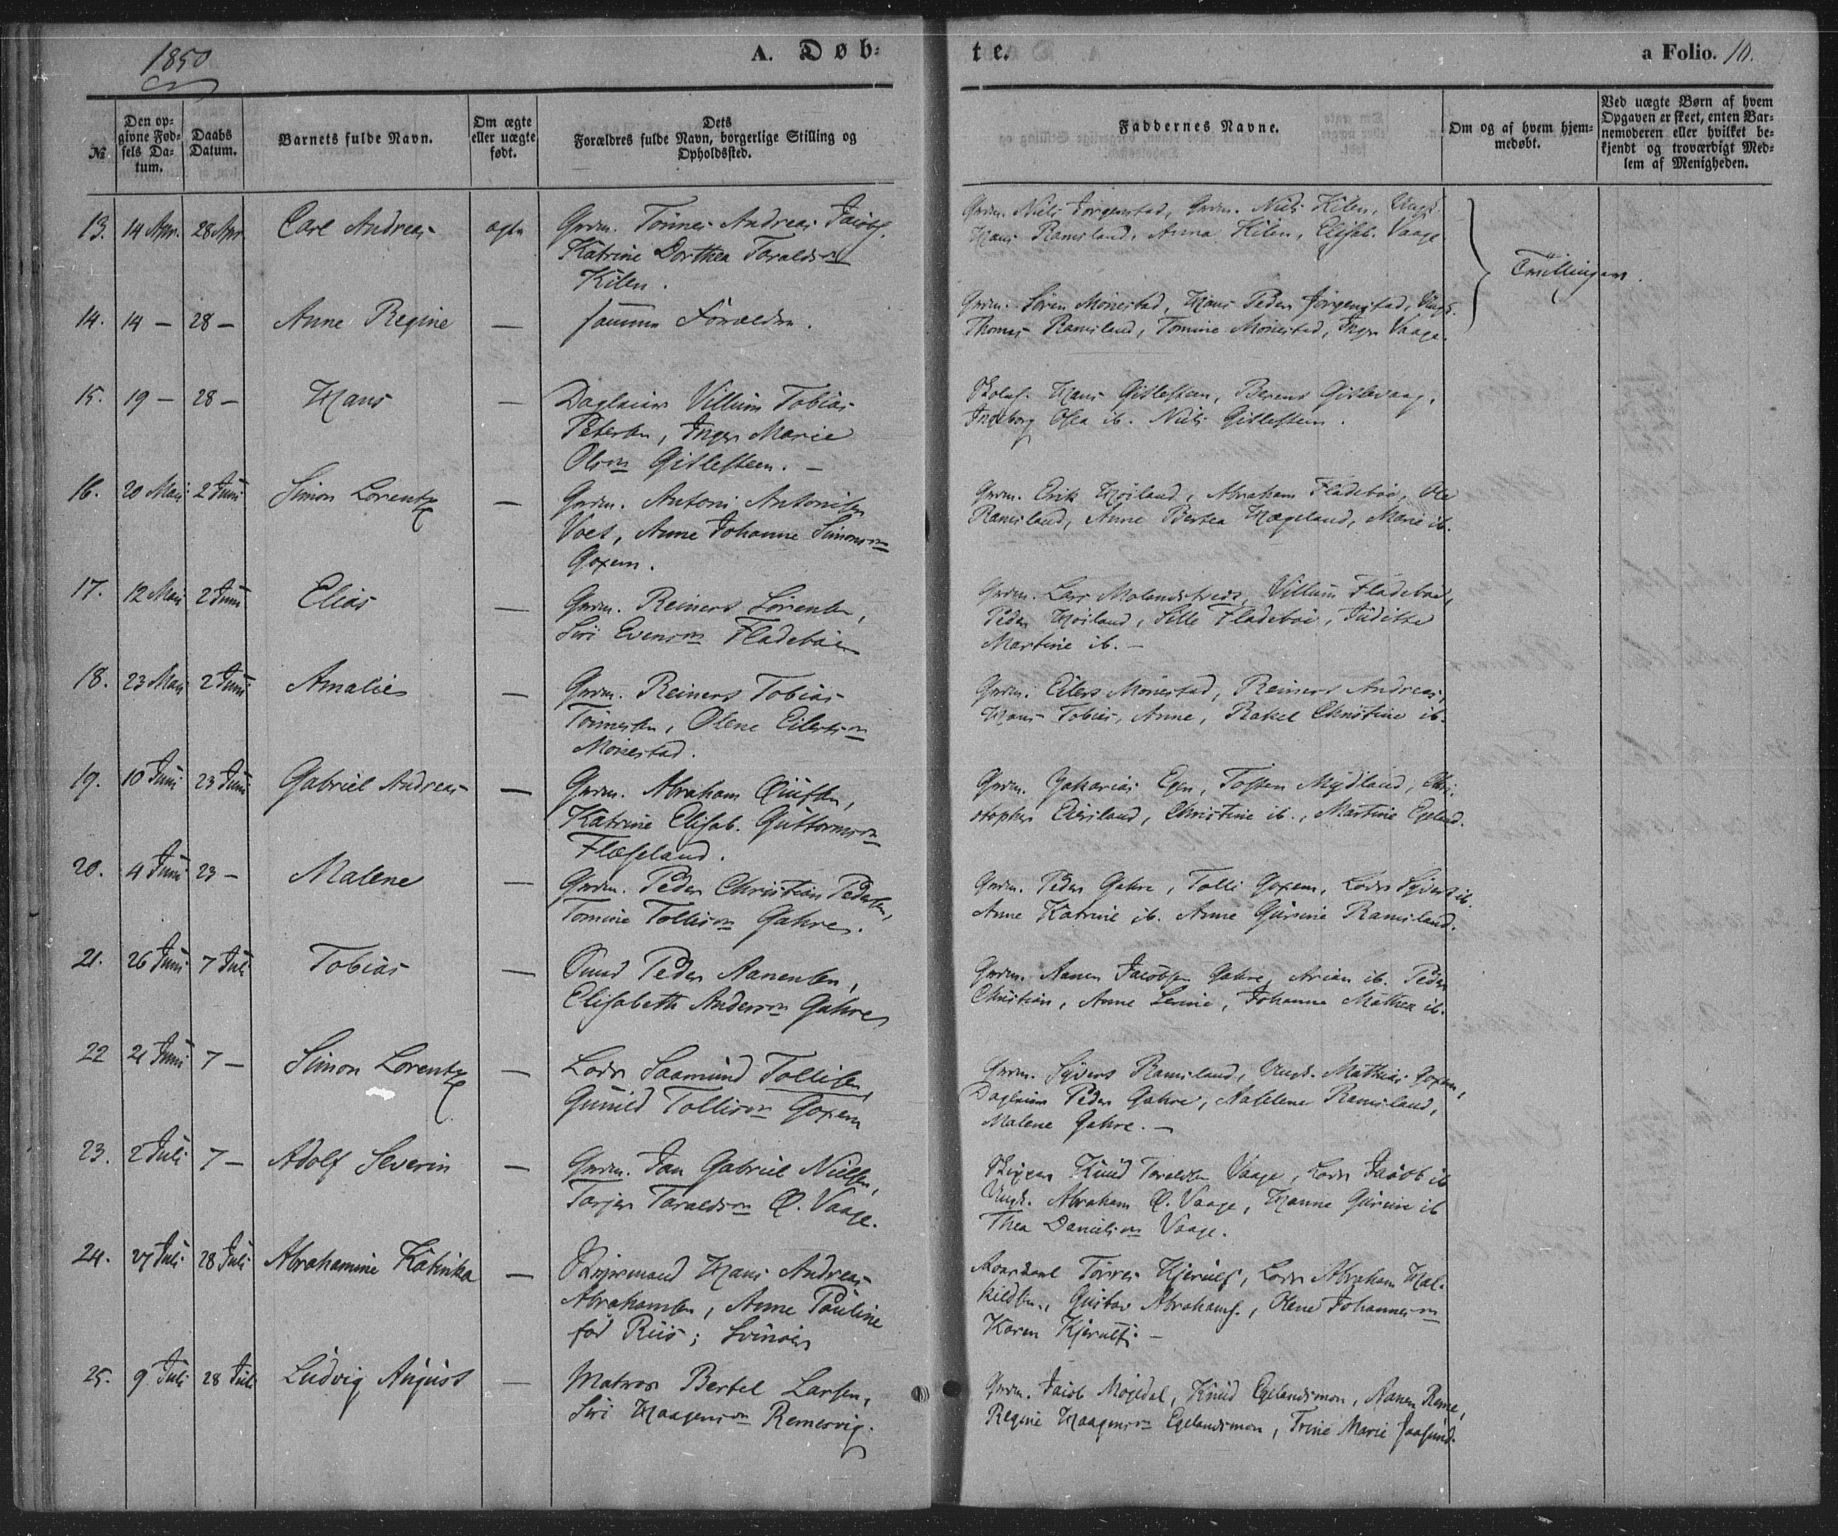 1850
A. Døb-
te.
a Folio. 10.
№
Den op-
givne Fød-
sels Da-
tum.
Daabs
Datum.
Barnets fulde Navn.
Om ægte
eller uægte
født.
Dets
Forældres fulde Navn, borgerlige Stilling og
Opholdssted.
Faddernes Navne.
Om og af hvem hjem-
medøbt.
Ved uægte Børn af hvem
Opgaven er skeet, enten Bar-
nemoderen eller hvilket be-
kjendt og troværdigt Med-
lem af Menigheden.
13. 14 Apr. 28 Apr. Carl Andreas ægte Grdm. Tönnes Andreas Jacobs.
Katrine Dorthea Taralds
Kilen.
Grdm. Niels Jörgenstad, Grdm. Niels Kilen, Ungk.
Hans Ramsland, Anna Kilen, Elisab. Vaage.
Tvillinger.
14. 14 — 28 — Anne Regine — samme Forældre.
Grdm. Sören Mönestad, Hans Peder Jörgenstad, Ungk.
Thomas Ramsland, Tomine Mönestad, Inger Vaage.
15. 19 — 28 — Hans — Dagleier Villum Tobias
Petersen, Inger Marie
Ols Gislesteen. —
Skolel. Hans Gislesteen, Berent Gislevaag,
Ingeborg Olea ib. Niels Gislesteen.
16. 20 Mai 2 Juni Simon Lorentz — Grdm. Antoni Antonisen
Voet, Anne Johanne Simons
Goxem.
Grdm. Erik Höiland, Abraham Fladeböe, Ole
Ramsland, Anne Bertea Hægeland, Marie ib.
17. 12 Mai 2 Juni Elias — Grdm. Reinert Lörentsen,
Siri Evens Fladeböe
Grdm. Lars, Villum Fladeböe,
Peder Höiland, Sille Fladeböe, Juditte
Martine ib. —
18. 23 Mai 2 Juni Amalie — Grdm. Reinert Tobias
Tönnesen, Olene Eilerts
Mönestad.
Grdm. Eilert Mönestad, Reinert Andreas,
Hans Tobias, Anne, Rakel Christine ib.
19. 10 Juni 23 Juni Gabriel Andreas — Grdm. Abraham
Katrine Elisab. Guttorms
Flægeland.
Grdm. Zakarias Egen, Tosten Mydland, Chri-
stopher, Christine ib., Martine Egeland.
20. 4 Juni 23 — Malene — Grdm. Peder Christian Pedersen,
Tomine Tollis Gahre.
Grdm. Peder Gahre, Tolli Goxem, Lods Syvert ib.
Anne Katrine ib. Anne Gurine Ramsland.
21. 26 Juni 7 Juli Tobias — Peder Aanensen,
Elisabeth Anders Gahre
Grdm. Aanen Jacobsen Gahre, Arian ib. Peder
Christian, Anne Serine, Johanne Mathea ib.
22 21 Juni 7 — Simon Lorentz — Lods Saamund Tollisen,
Gunild Tollis Goxem
Grdm. Syvert Ramsland, Ungk. Mathias Goxem,
Dagleier Peder Gahre, Nalene Ramsland,
Malene Gahre. —
23. 2 Juli 7 — Adolf Severin — Grdm. Jan Gabriel Nielsen,
Torjer Taralds Ø. Vaage.
Skipper Knud Taraldsen Vaage, Lods Jacob ib
Ungk. Abraham Ø. Vaage, Hanne Gurine ib
Thea Daniels Vaage.
24. 27 Juli 28 Juli Abrahamine Katinka — Hans Andreas
Abrahamsen, Anne Pauline
fød Riis; Svinöer
Tönnes Kjerulf, Lods Abraham Hal-
kildsen, Gustav Abrahams., Olene Johannes
Karen Kjerulf. —
25. 9 Juli 28 Juli Ludvig August — Matros Bertel Larsen,
Siri Haagens Remesvig.
Grdm. Jacob Möjedal, Knud Egelandsmon, Aanen Reme,
Regine Haagens Egelandsmon, Trine Marie